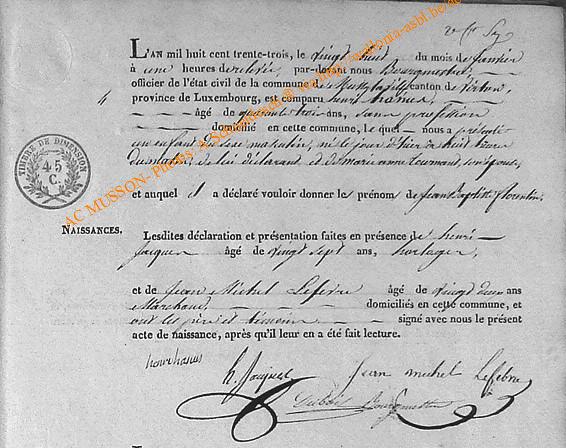 L'AN mil huit cent trente-trois, le vingt huit du mois de janvier
à une heures de relevée, par-devant nous Bourgmestre,
officier de l'état civil de la commune de Mussy la ville canton de Virton,
province de Luxembourg, est comparu henri hanus,
4
âgé de quarante trois ans, sans profession
domicilié en cette commune, le quel nous a présenté
un enfant du sexe masculin, né le jour d'hier à huit heures
du matin, de lui déclarant, et de marie anne tournant, son épouse,
et auquel il a déclaré vouloir donner les prénom de Jean Baptiste florentin.
TIMBRE DE DIMENSION
45
C.
NAISSANCES.
Lesdites déclaration et présentation faites en présence de henri
Jacques âgé de vingt sept ans, horloger,
et de Jean Michel Lefevre âgé de vingt deux ans
Marchand, domiciliés en cette commune, et
ont les père et témoins signé avec nous le présent
acte de naissance, après qu'il leur en a été fait lecture.
henri hanus
h. Jacques
Jean michel Lefebvre
Bourgmestre
AC MUSSON-